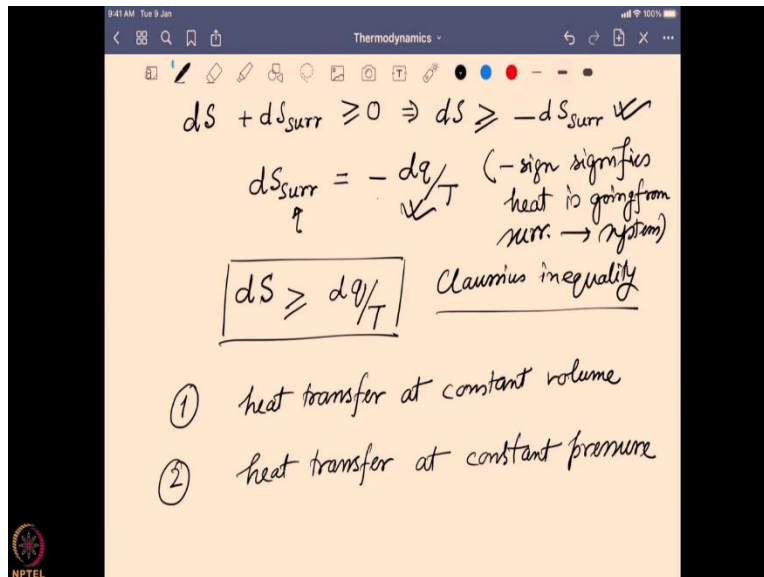 9:41 AM Tue 9 Jan
100%
Thermodynamics
dS + dS_surr ≥ 0 ⇒ dS ≥ - dS_surr
dS_surr = - dq/T (- sign signifies
heat is going from
surr. → system)
dS ≥ dq/T Clausius inequality
① heat transfer at constant volume
② heat transfer at constant pressure
NPTEL